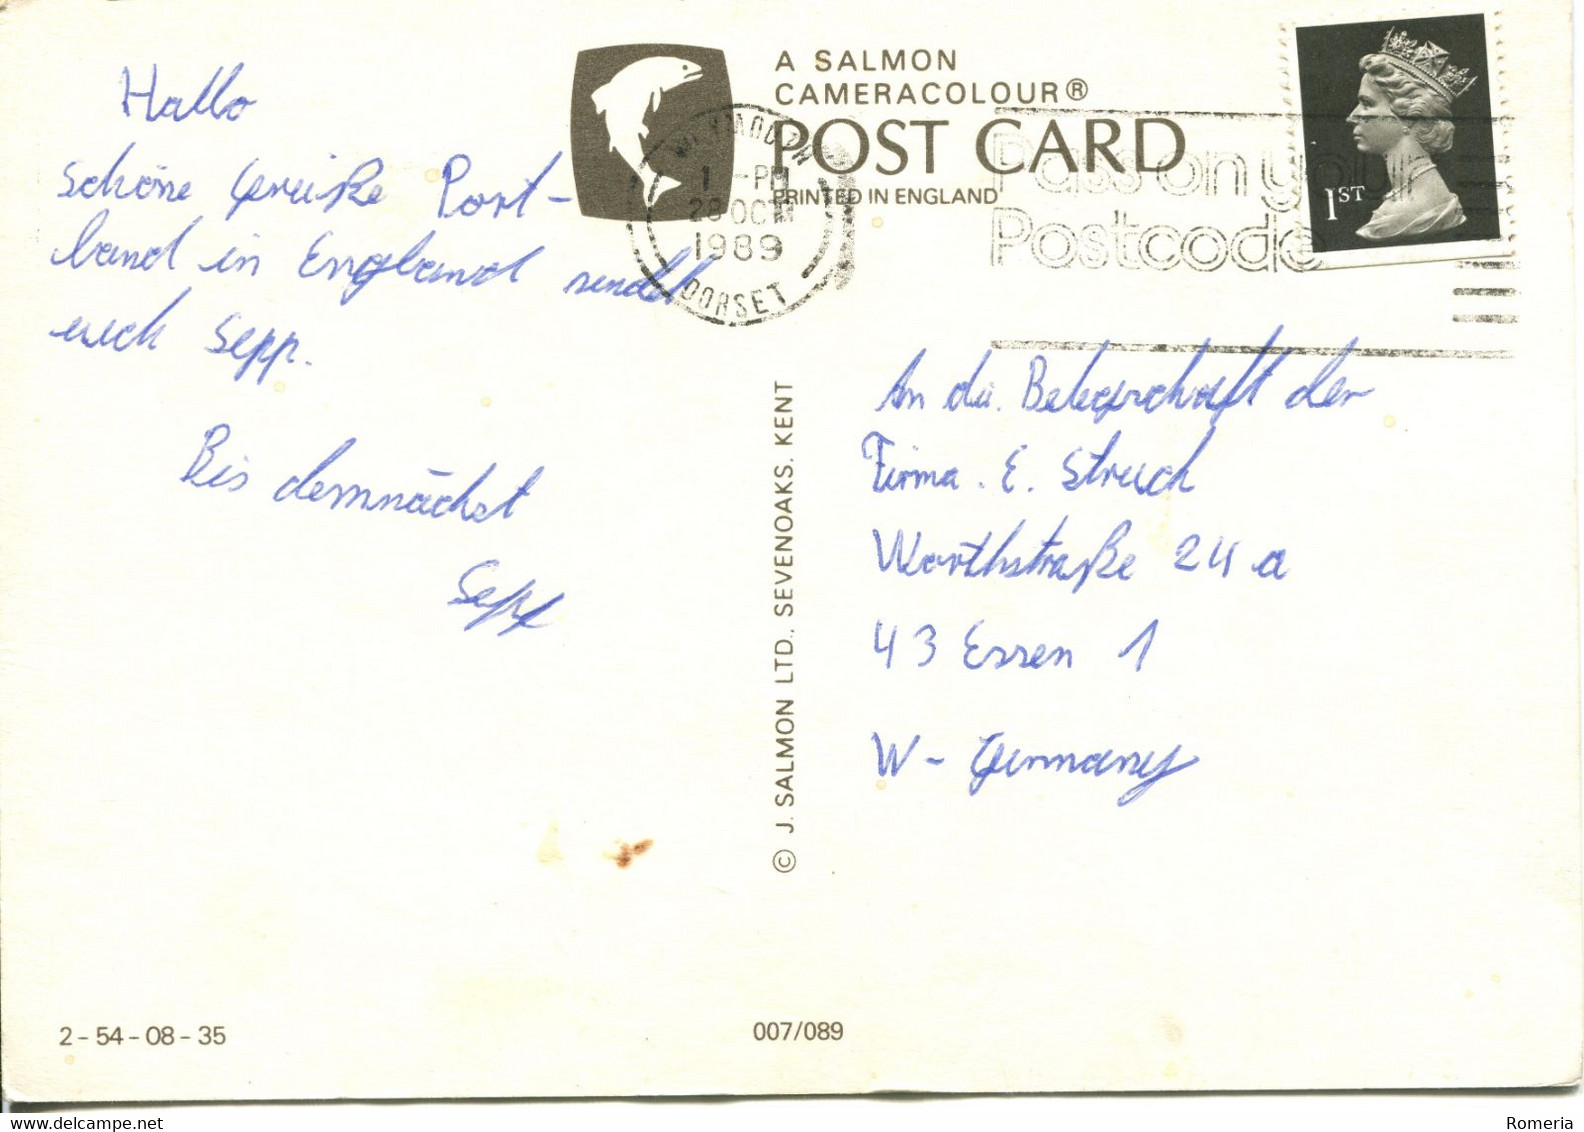 Hallo
schöne Gruiße Port-
land in England sendet
euch Sepp.
Bis demnächst
Sepp
A SALMON
CAMERACOLOUR®
POST CARD
PRINTED IN ENGLAND
WEYMOUTH
1 -PM
28 OCT
1989
DORSET
Pass on your
Postcode
1ST
An die Belegschaft der
Firma. E. Struch
Worthstraße 24 a
43 Essen 1
W - Germany
© J. SALMON LTD., SEVENOAKS. KENT
2 - 54 - 08 - 35
007/089
www.delcampe.net
Romeria